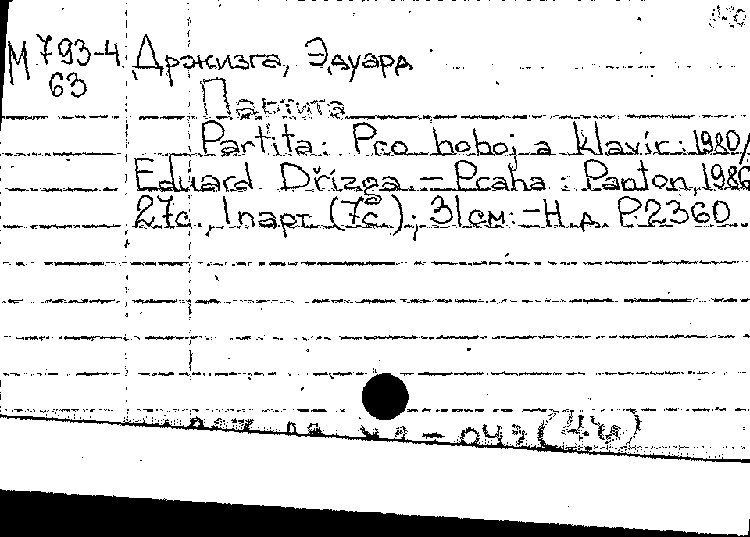 М 793-4 Држизга, Эдуард
63
Партита
Partita: Pro hoboj a klavír: 1980/
Eduard Dřízga. — Praha: Panton, 1986
27с., 1 парт. (7с); 31см. — Н.д. P.2360